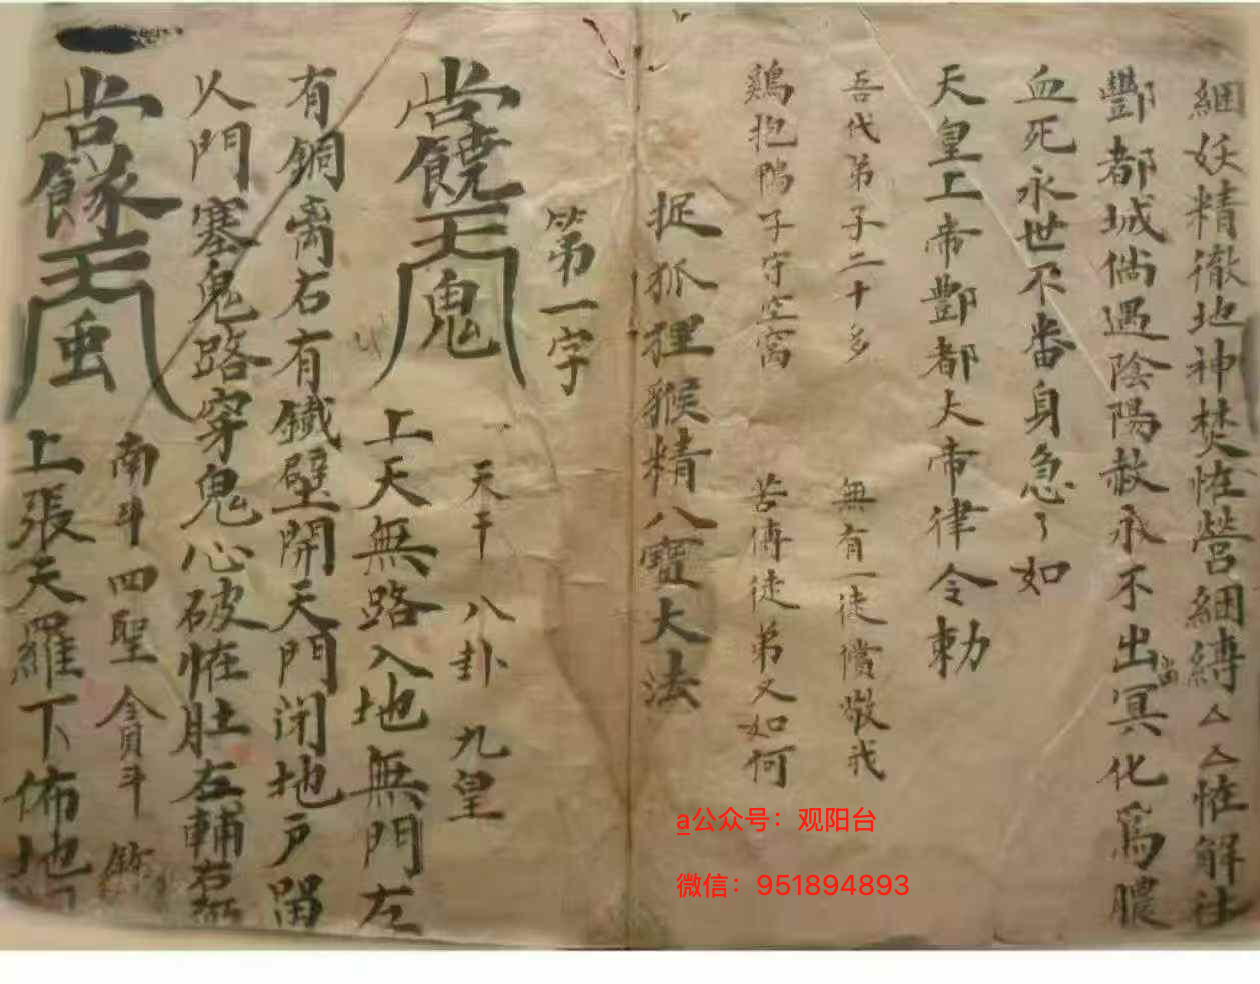 綑妖精徹地神焚怪營綑縛厶厶怪解往
酆都城倘遇陰陽赦永不出冥化為膿
當
血死永世不番身急了如
天皇上帝酆都大帝律令勅
吾代弟子二十多 無有一徒償敬我
鷄抱鴨子守空窩 苦傳徒弟又如何
捉狐狸猴精八寶大法
第一字
天干 八卦 九皇
鬼 上天無路入地無門左
有銅离右有鐵壁開天門闭地户畄
人門塞鬼路穿鬼心破怪肚左輔右弼
南斗 四聖 貪斗
上張天羅下佈地
a公众号：观阳台
微信：951894893